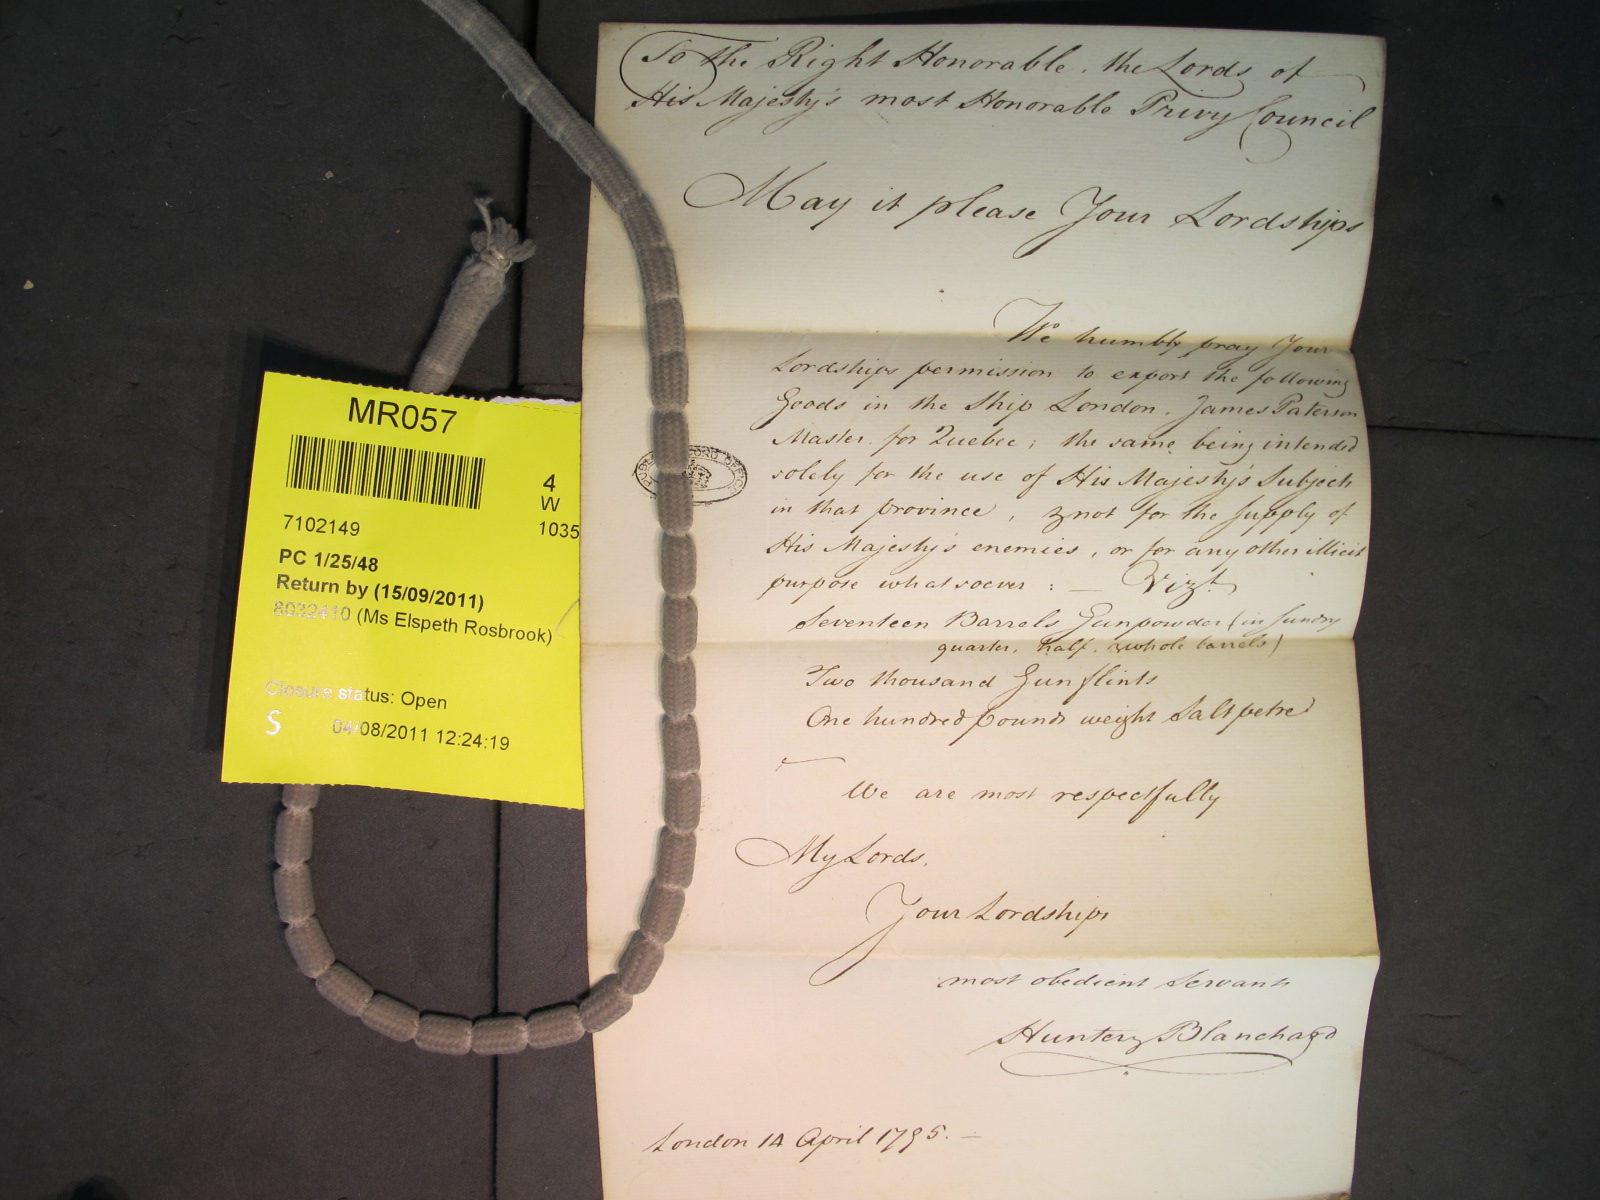 To the Right Honorable, the Lords of
His Majesty's most Honorable Privy Council
May it please Your Lordships
We humbly pray Your
Lordships permission to export the following
Goods in the Ship London. James Paterson
Master. for Quebec; the same being intended
solely for the use of His Majesty's Subjects
in that province, & not for the supply of
His Majesty's enemies, or for any other illicit
purpose whatsoever: — Vizt.
Seventeen Barrels Gunpowder (in sundry
quarter, half, & whole barrels)
Two thousand Gunflints
One hundred pounds weight Saltpetre
We are most respectfully
My Lords,
Your Lordships
most obedient Servants
Hunter & Blanchard
London 14 April 1795. —
PUBLIC RECORD OFFICE
MR057
4
W
1035
7102149
PC 1/25/48
Return by (15/09/2011)
8032410 (Ms Elspeth Rosbrook)
Closure status: Open
S 04/08/2011 12:24:19